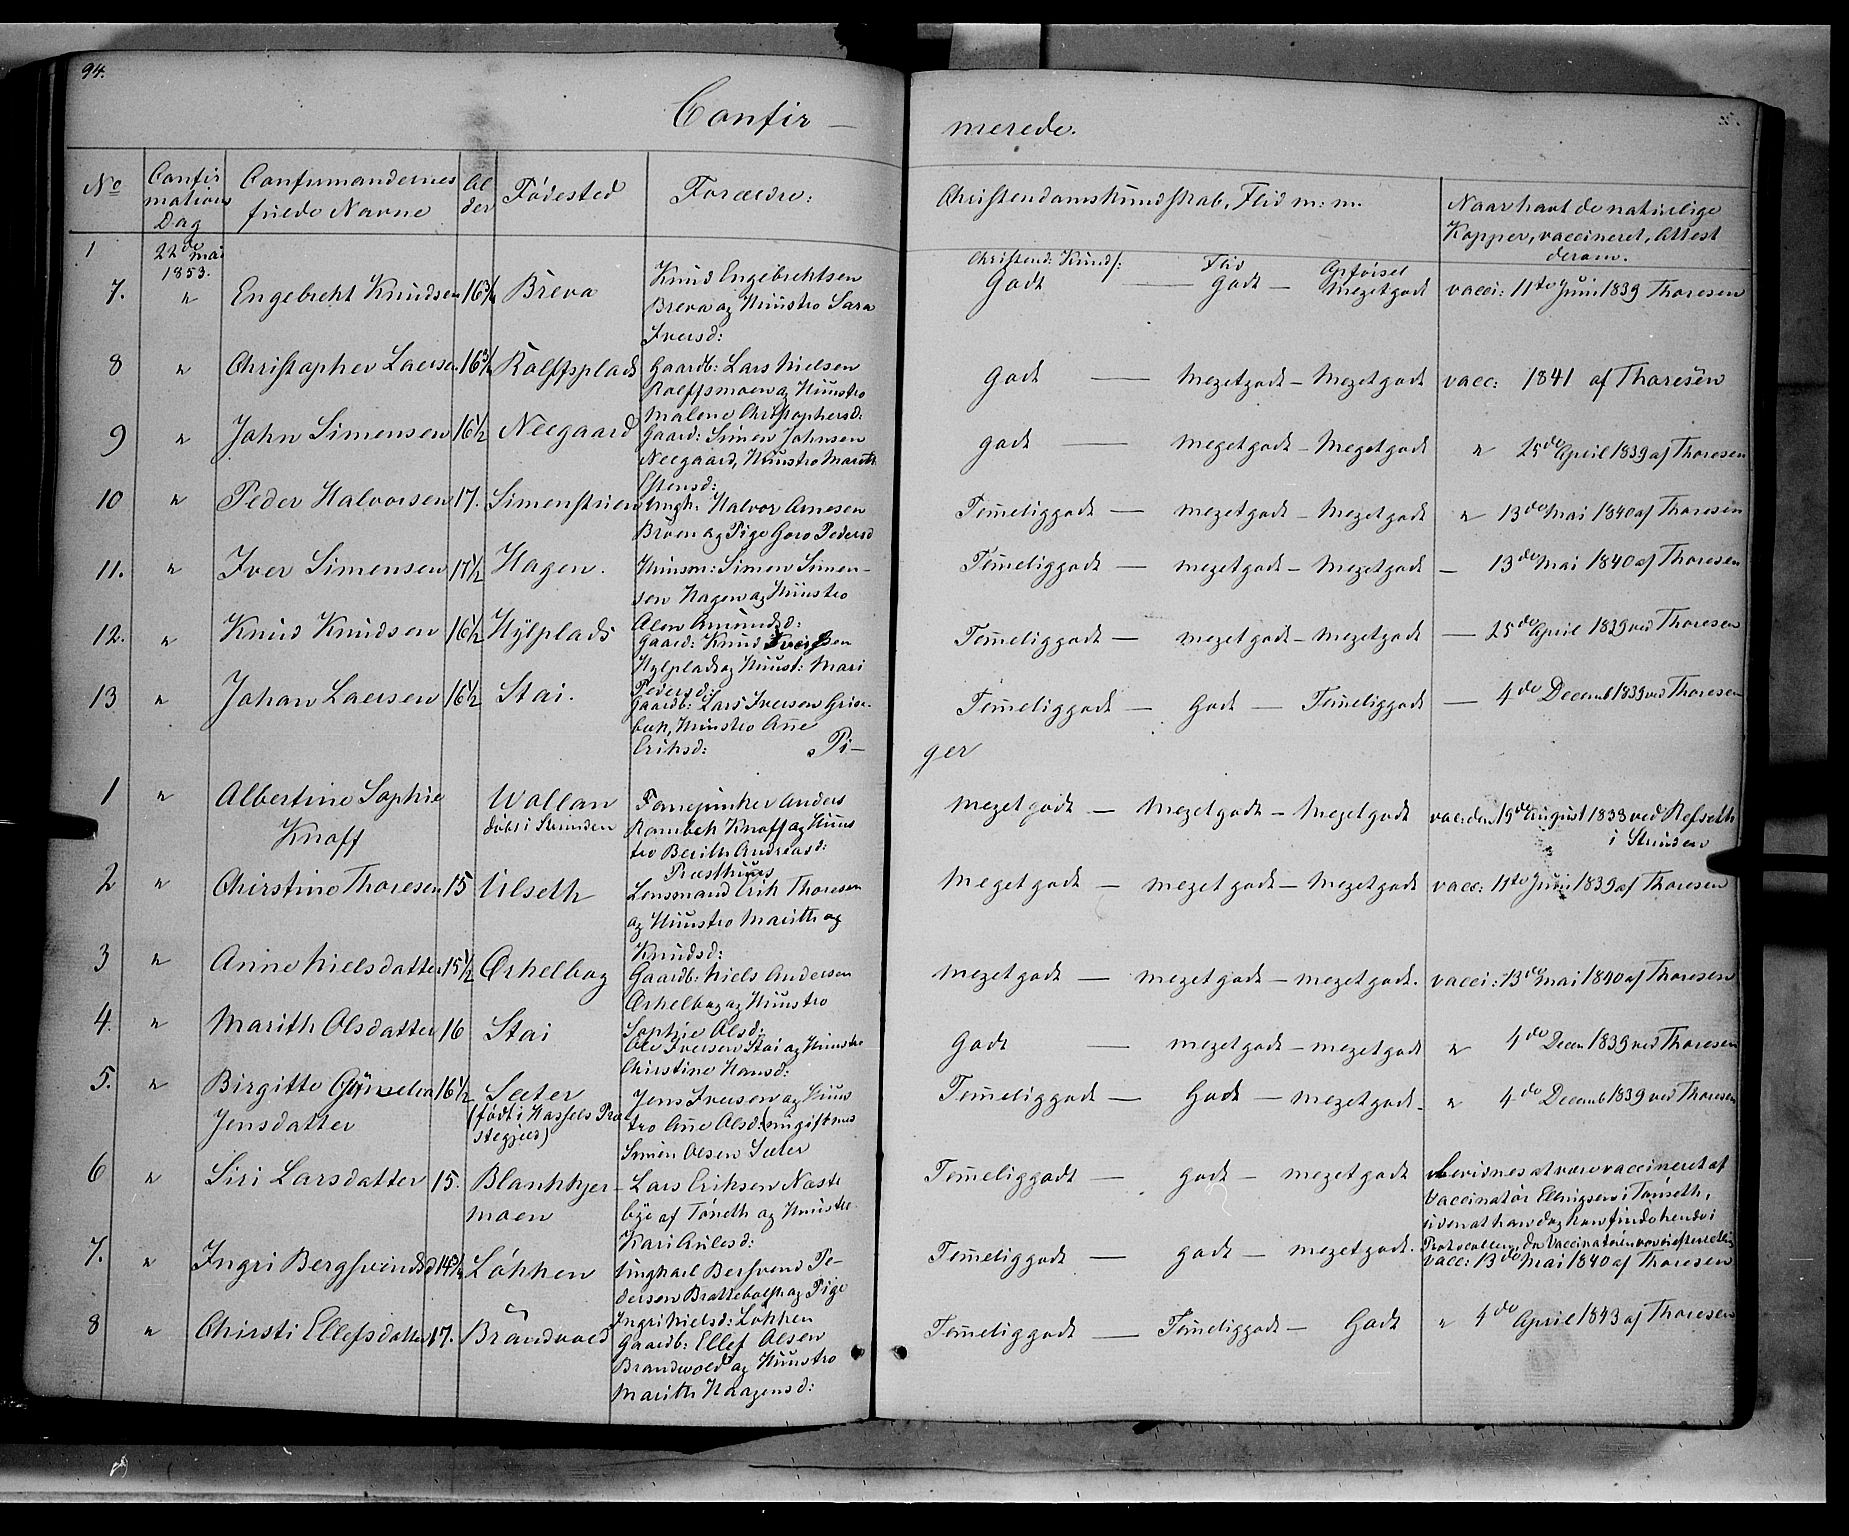 94.
Confir —
merede.
No
Confir
mations
Dag
Confirmandernes
fulde Navne
Al
der
Fødested
Forældre:
Christendomskundskab, Flid m: m.
Naar havt de naturlige
Kopper, vaccineret, Attest
derom.
1
22de Mai
1853.
Christend: Kunds:
Flid
Opførsel
7. " Engebreht Knudsen 16 3/4 Breva
Knud Engebrehtsen
Breva og Huustro Sara
Iversd:
Godt — Godt — Megetgodt vacci: 11te Juni 1839 Thoresen
8 " Christopher Larsen 16 3/4 Rolffsplads
Gaardb: Lars Nielsen
Rolffsmoen og Huustro
Malene Christophersd:
Godt — Megetgodt — Megetgodt vacc: 1841 af Thoresen
9 " John Simensen 16 1/2 Neegaard
Gaard: Simen Johnsen
Neegaard, Huustro Marith
Estensd:
godt — Megetgodt — Megetgodt " 25de April 1839 af Thoresen
10 " Peder Halvorsen 17. Simenstuen
Ungk: Halvor Arnesen
Broen og Pige Goro Pedersd
Temeliggodt — megetgodt — Megetgodt " 13de Mai 1840 af Thoresen
11. " Iver Simensen 17 1/2 Hagen.
Huusm: Simen Simen-
sen Hagen og Huustro
Alen Amundsd:
Temeliggodt — megetgodt — Megetgodt — 13de Mai 1840 af Thoresen
12. " Knud Knudsen 16 1/2 Hylplads
Gaard: Knud Iversen
Hylplads og Huust: Mari
Pedersd:
Temeliggodt — megetgodt — Megetgodt — 25de April 1839 ved Thoresen
13 " Johan Larsen 16 1/2 Stai.
Gaardb: Lars Iversen Grise-
bak, Huustro Ane
Eriksd:
Temeliggodt — Godt — Temeliggodt — 4de Decemb 1839 ved Thoresen
Pi —
ger
1 " Albertine Sophie
Knoff
Wollan
døbt i Strinden
Fanejunker Anders
Rambek Knoff og Huus
tro Berith Andreasd:
Prasthuus
Megetgodt — Megetgodt — Megetgodt vac: den 19de August 1838 ved Refseth
i Strinden
2 " Christine Thoresen 15 Ulseth
Lensmand Erik Thoresen
og Huustro Marith og
Knudsd:
Megetgodt — megetgodt — Megetgodt vacc: 11te Juni 1839 af Thoresen
3 " Anne Nielsdatter 15 1/2 Ørhelbog
Gaardb: Niels Andersen
Ørhelbog og Huustro
Sophie Olsd:
Megetgodt — megetgodt — megetgodt. vacci: 13de Mai 1840 af Thoresen
4. " Marith Olsdatter 16 Stai
Ole Iversen Stai og Huustro
Christine Hansd:
Godt — megetgodt — megetgodt " 4de Decem 1839 ved Thoresen
5. " Birgitte 16 1/2 Sæter
Jensdatter
(født i Hassels Præ
stegjeld)
Jens Iversen og Huus
tro Ane Olsd:
Simen Olsen Sæter
Temeliggodt — Godt — megetgodt — " 4de Decemb 1839 ved Thoresen
6 " Siri Larsdatter 15. Blankkjer-
moen
Lars Eriksen Næste
bye af Tøneth og Huustro
Kari
Temeliggodt — godt — megetgodt Bevidnes at være vaccineret af
Vaccinatør Ellingsen i Tønseth,
uden at han dog kan finde hende i
Protocollen, da Vaccinatøren
7. " Ingri Bergsvendsd 14 3/4 Løkken
Ungkarl Bersvend Pe-
dersen og Pige
Ingri Nielsd: Løkken
Temeliggodt — godt — megetgodt. vacc: 13de Mai 1840 af Thoresen
8 " Chirsti Ellefsdatter 17. Brandvold
Gaardb: Ellef Olsen
Brandwold og Huustro
Marith Haagensd:
Temeliggodt — Temeliggodt — Godt " 4de April 1843 af Thoresen